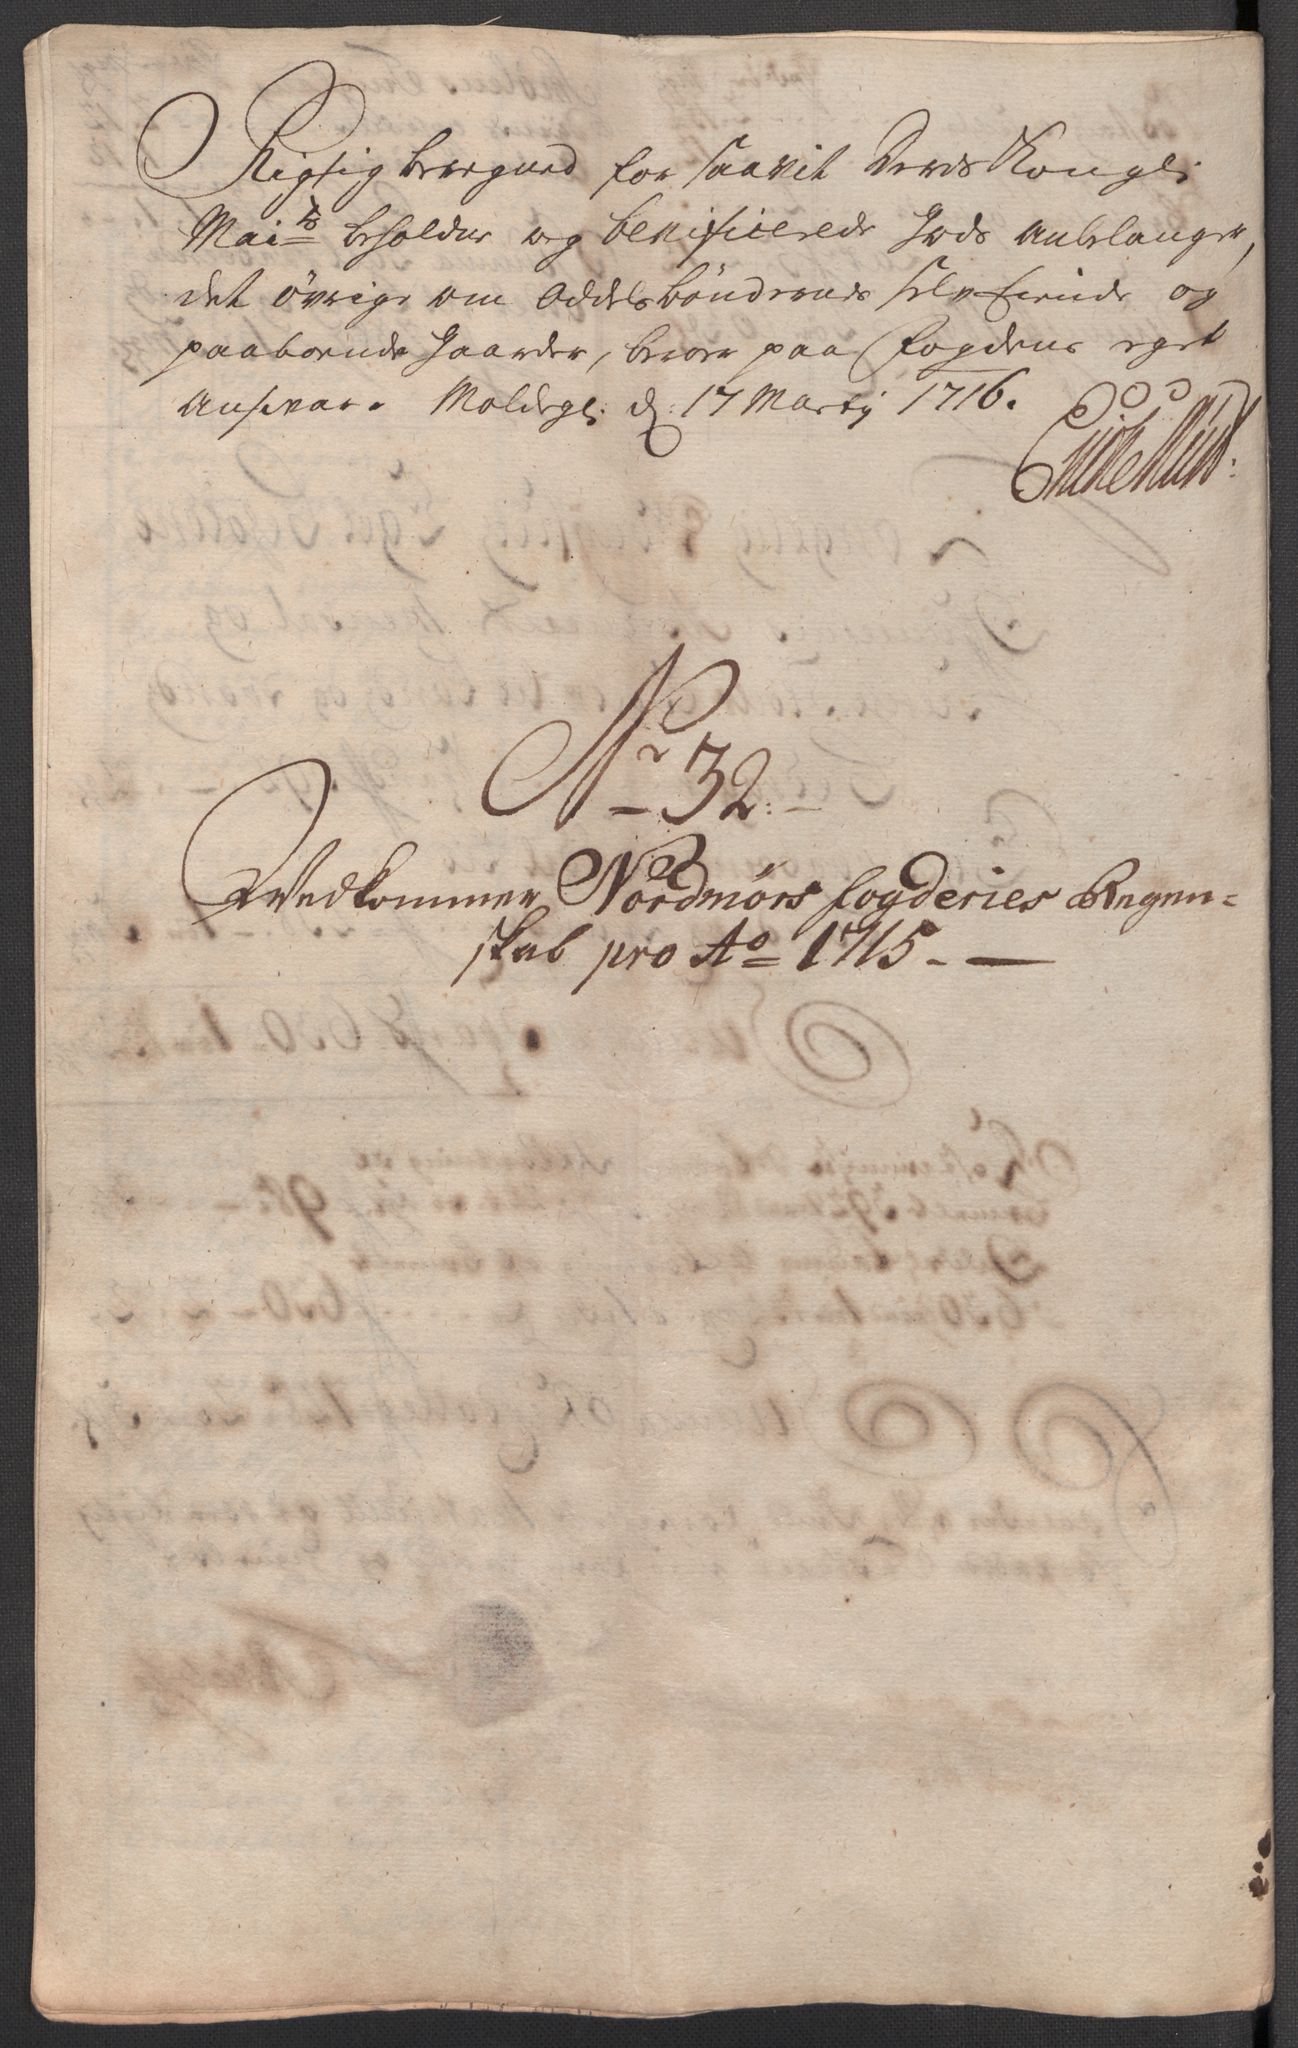 Rigtig beregned for saavit Deres Kongl:
Maits beholdne og benificerede Gods anbelanger,
det øvrige om Oddelsbøndernes selv Eiende og
paaboende Gaarder, beroer paa Fogdens eget
Ansvar. Moldegr: d: 17 Martij 1716.
Nr 32:
Vedkommer Nordmørs fogderies Regen=
skab pro Ao 1715.